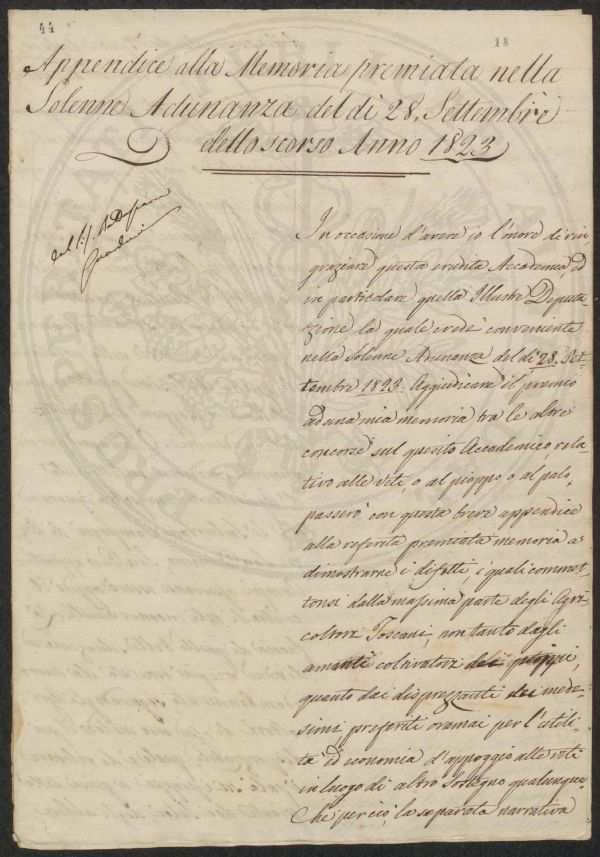 44
18
Appendice alla Memoria premiata nella
Solenne Adunanza del di 28. Settembre
dello scorso Anno 1823
del
In occasione d'avere io l'onore di rin
graziare questa erudita Accademia, ed
in particolare quella Illustre Deputa
zione la quale credè conveniente
nella Solenne Adunanza del dì 28. Set-
tembre 1823. Aggiudicare il premio
ad una mia memoria tra le altre
concorse sul quesito Accademico rela-
tivo alle viti, o al pioppo o al palo,
passerò con questa breve appendice
alla referita premiata memoria a
dimostrarne i difetti, i quali commet-
tonsi dalla massima parte degli Agri-
coltori Toscani, non tanto dagli
amanti coltivatori dei pioppi,
quanto dai disprezzanti dei mede-
simi, preferiti oramai per l'utili-
tà ed economia d'appoggio alle viti
in luogo di altro sostegno qualunque.
Che perciò, la separata narrativa